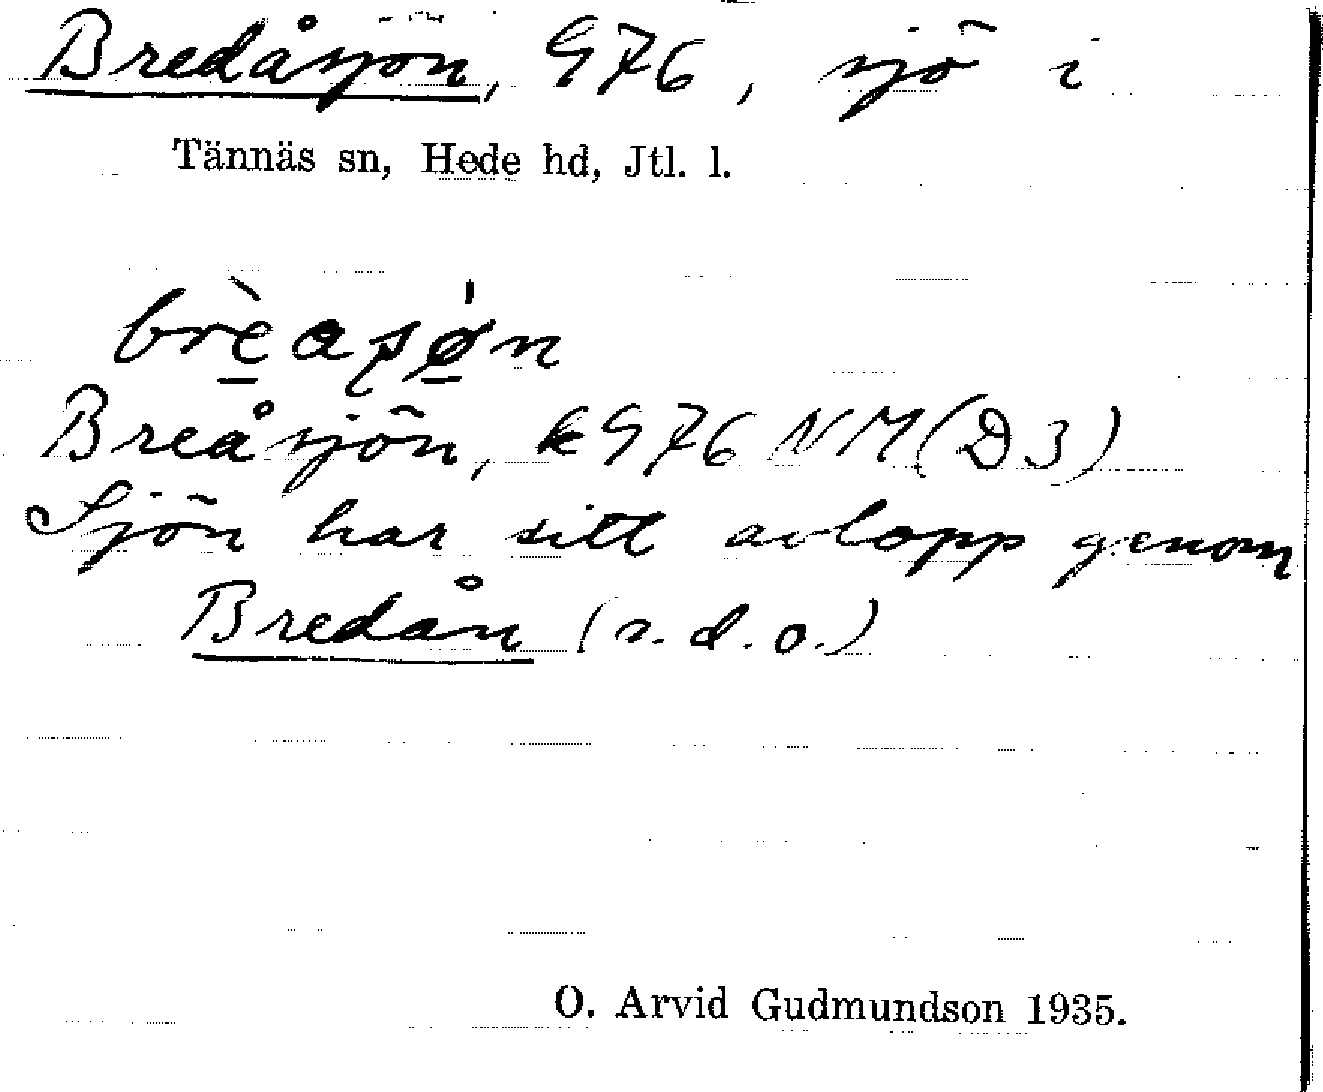 Bredåsjön, 976, sjö i
Tännäs sn, Hede hd, Jtl. l.
Breåsjön, k 976 NM (D3)
Sjön har sitt avlopp genom
Bredån (s. d. o.)
O. Arvid Gudmundson 1935.